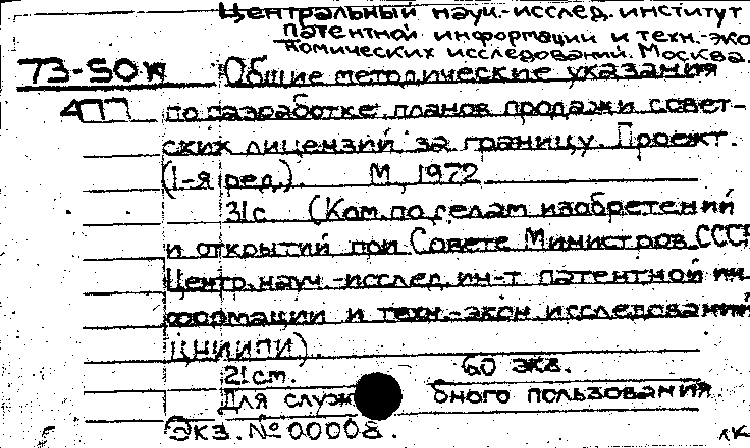 Центральный науч.-исслед. институт
патентной информации и техн.-эко
номических исследований. Москва.
73-50
Общие методические указания
477
по разработке планов продажи совет-
ских лицензий за границу. Проект.
(1-я ред.). М., 1972
31с. (Ком. по делам изобретений
и открытий при Совете Министров СССР
Центр. науч.-исслед. ин-т патентной ин-
формации и техн.-экон. исследований
ЦНИИПИ).
21см. 60 экз.
Для служебного пользования.
Экз. №00008.